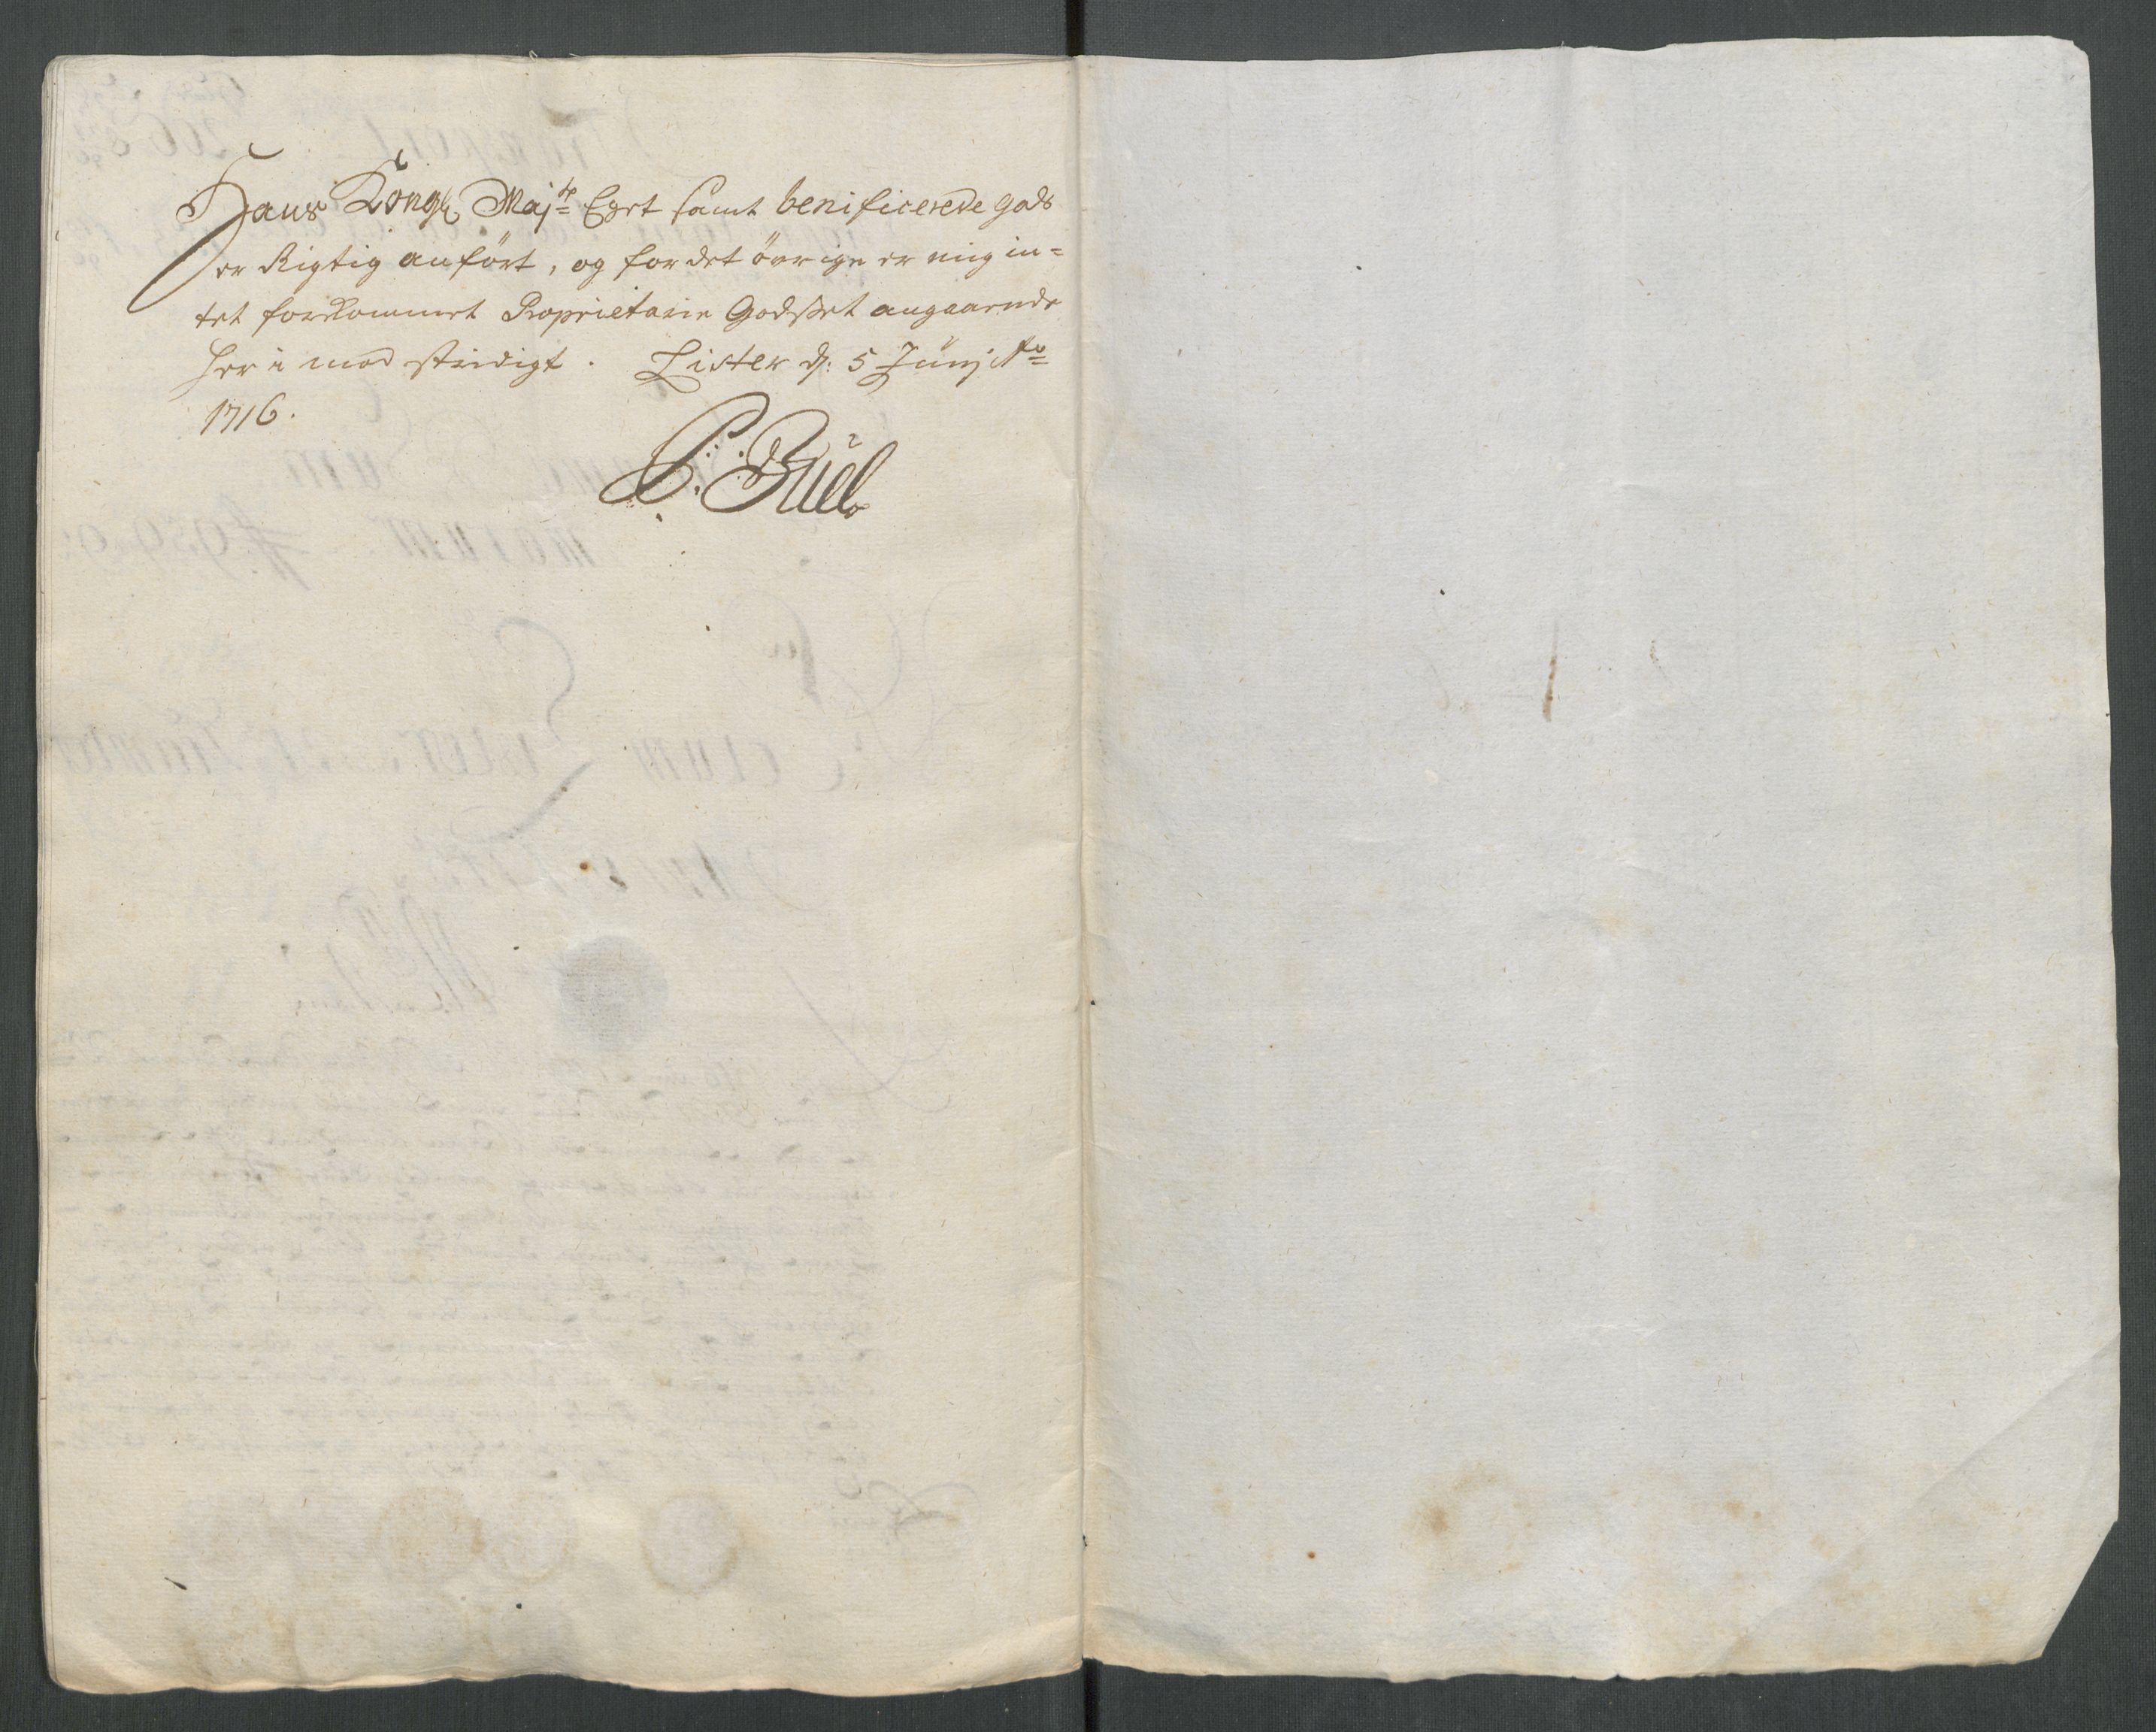 Hans Kongl Maj:te Eget samt benificerede gods
er Rigtig anført, og for det övrige er mig in=
tet forekommet Proprietarie Godset angaaende
her i mod stridigt. Lister d: 5 Junj Ao
1716.
P. Büel